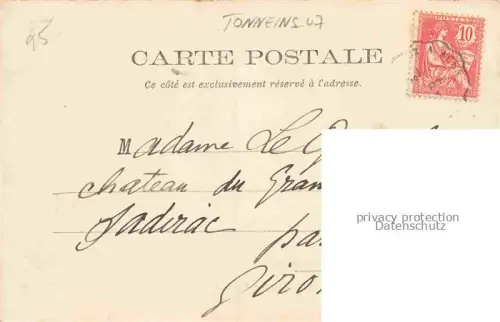 25 TONNEINS 47
10
CARTE POSTALE
Ce côté est exclusivement réservé à l'adresse.
Madame Le
chateau du Gran
Sadirac
par
Giro
privacy protection
Datenschutz